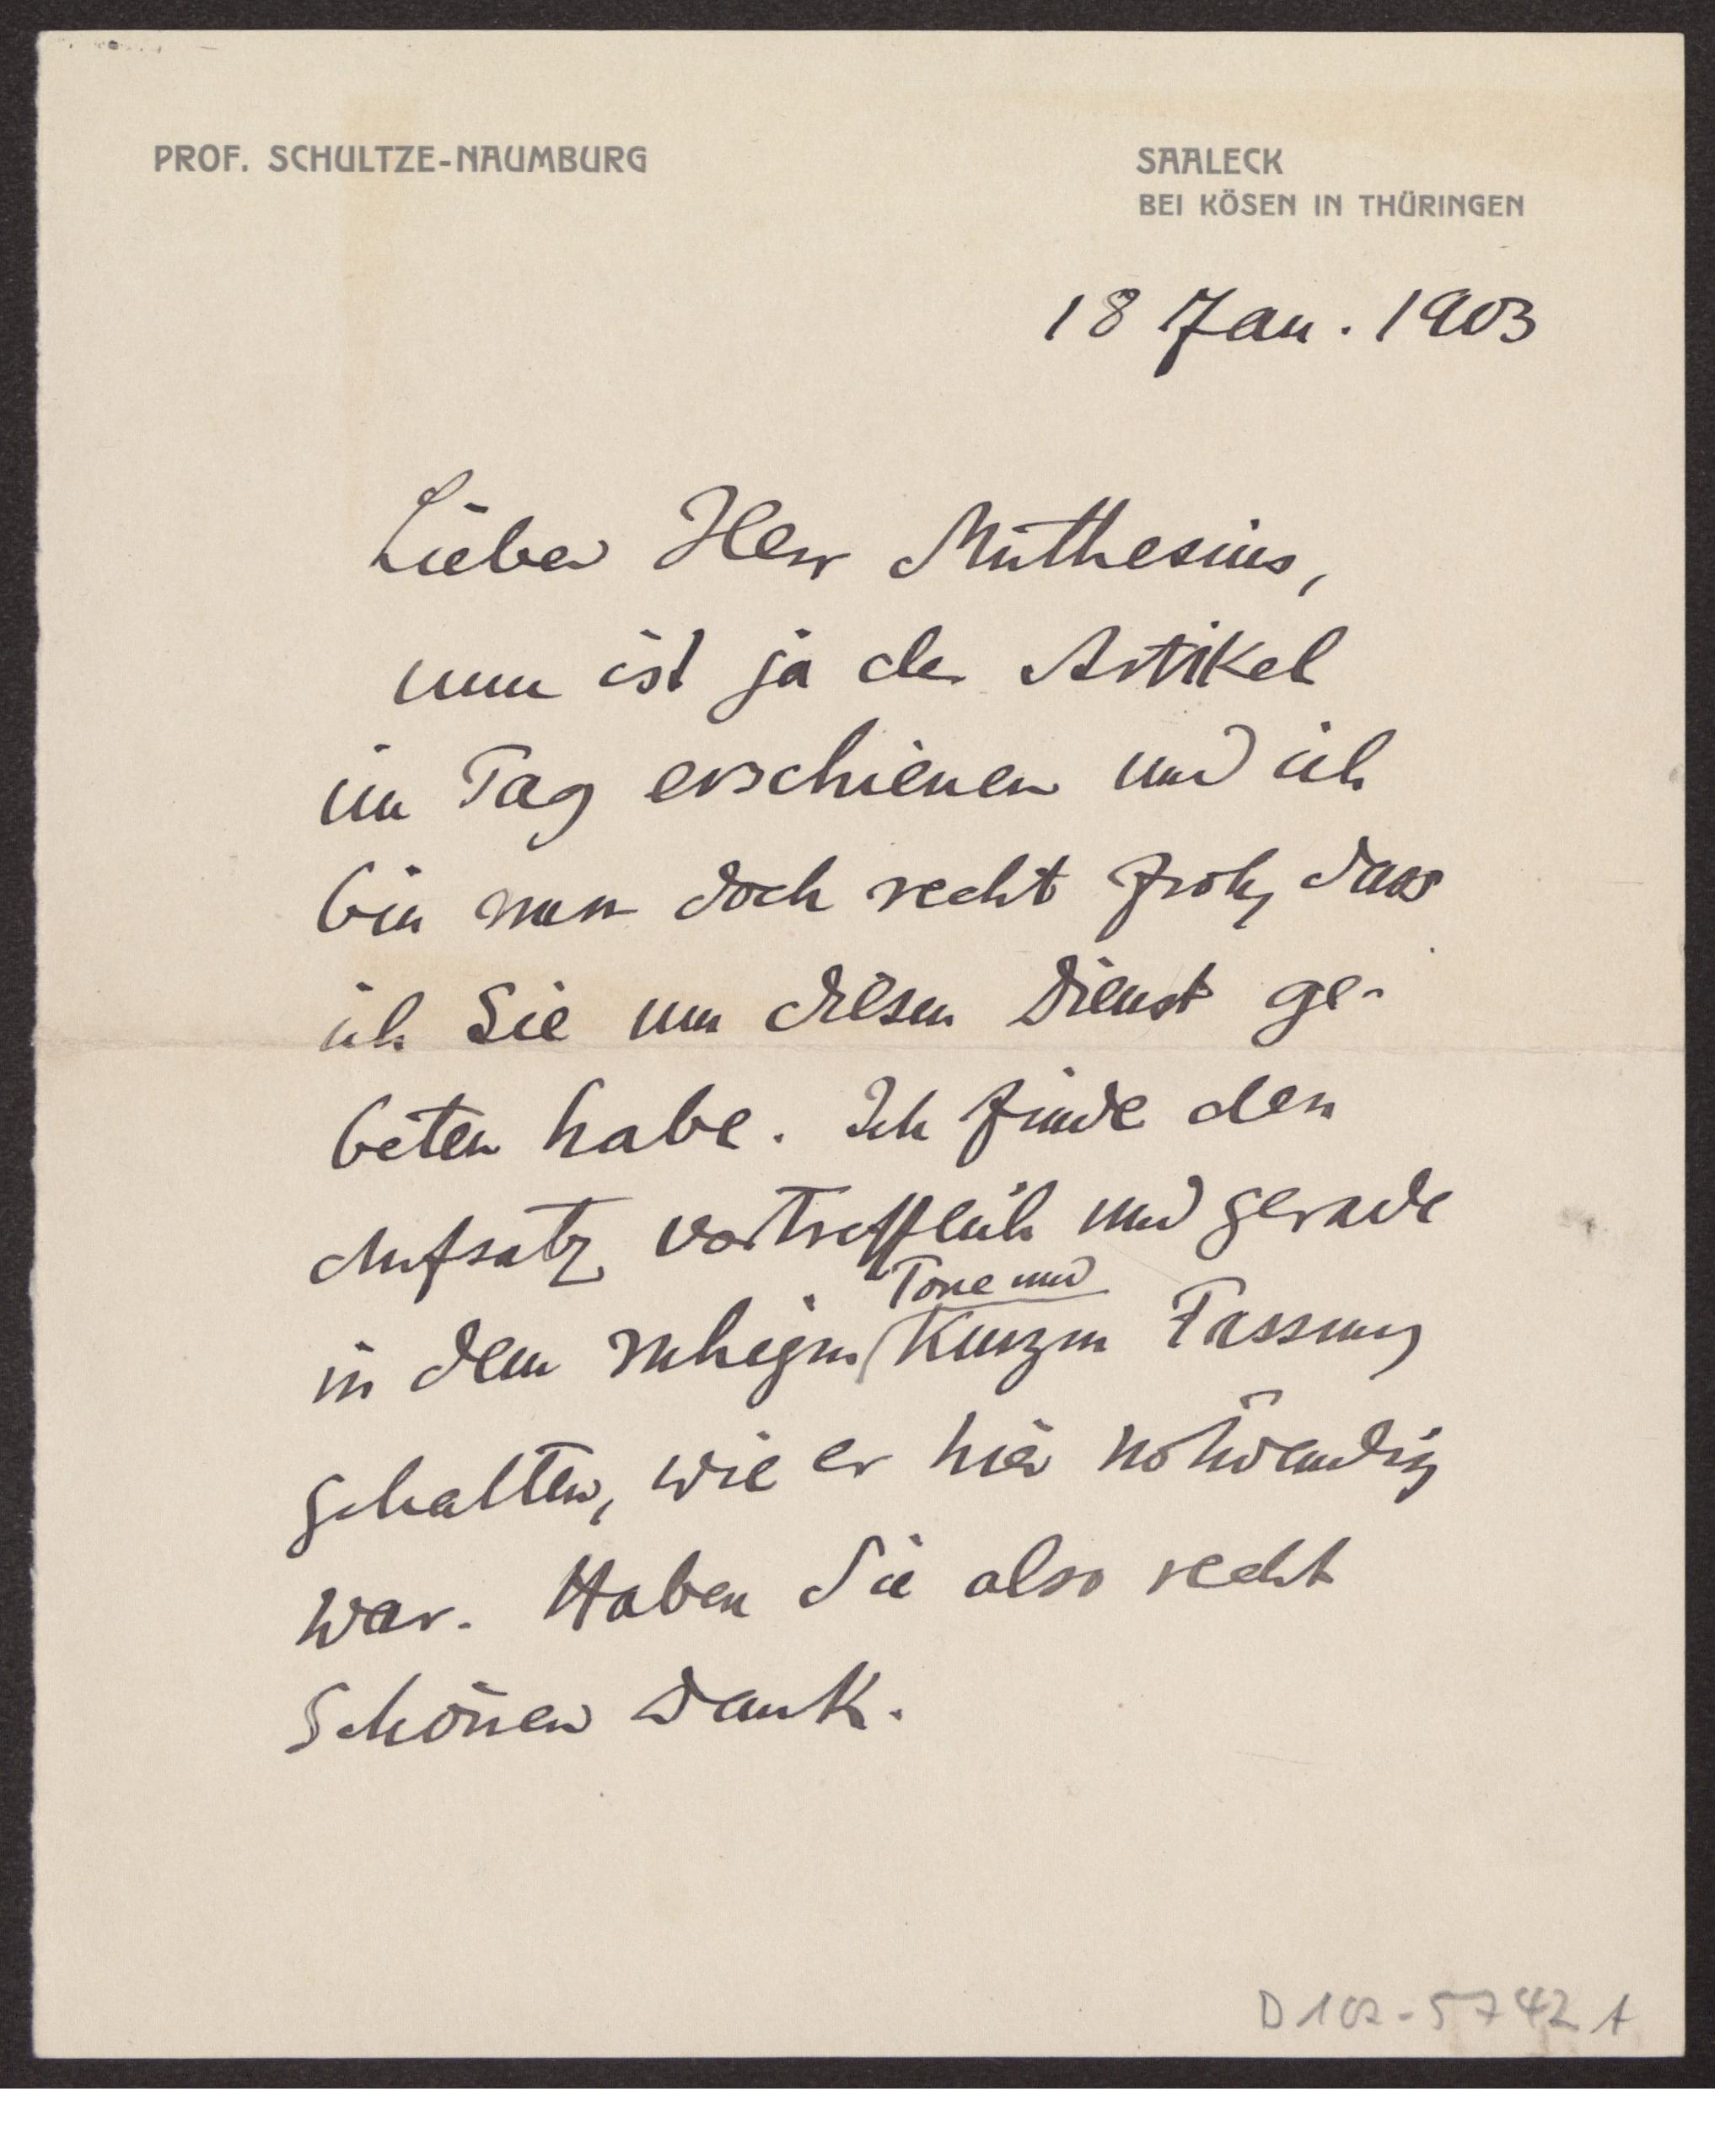 PROF. SCHULTZE-NAUMBURG
SAALECK
BEI KÖSEN IN THÜRINGEN
18 Jan. 1903
Lieber Herr Muthesius,
nun ist ja der Artikel
im Tag erschienen und ich
bin nun doch recht froh, dass
ich Sie um diesen Dienst ge-
beten habe. Ich finde den
Aufsatz vortrefflich und gerade
Tone und
in dem ruhigen kurzen Fassung
gehalten, wie er hier nothwendig
war. Haben Sie also recht
schönen Dank.
D 102-5742 A